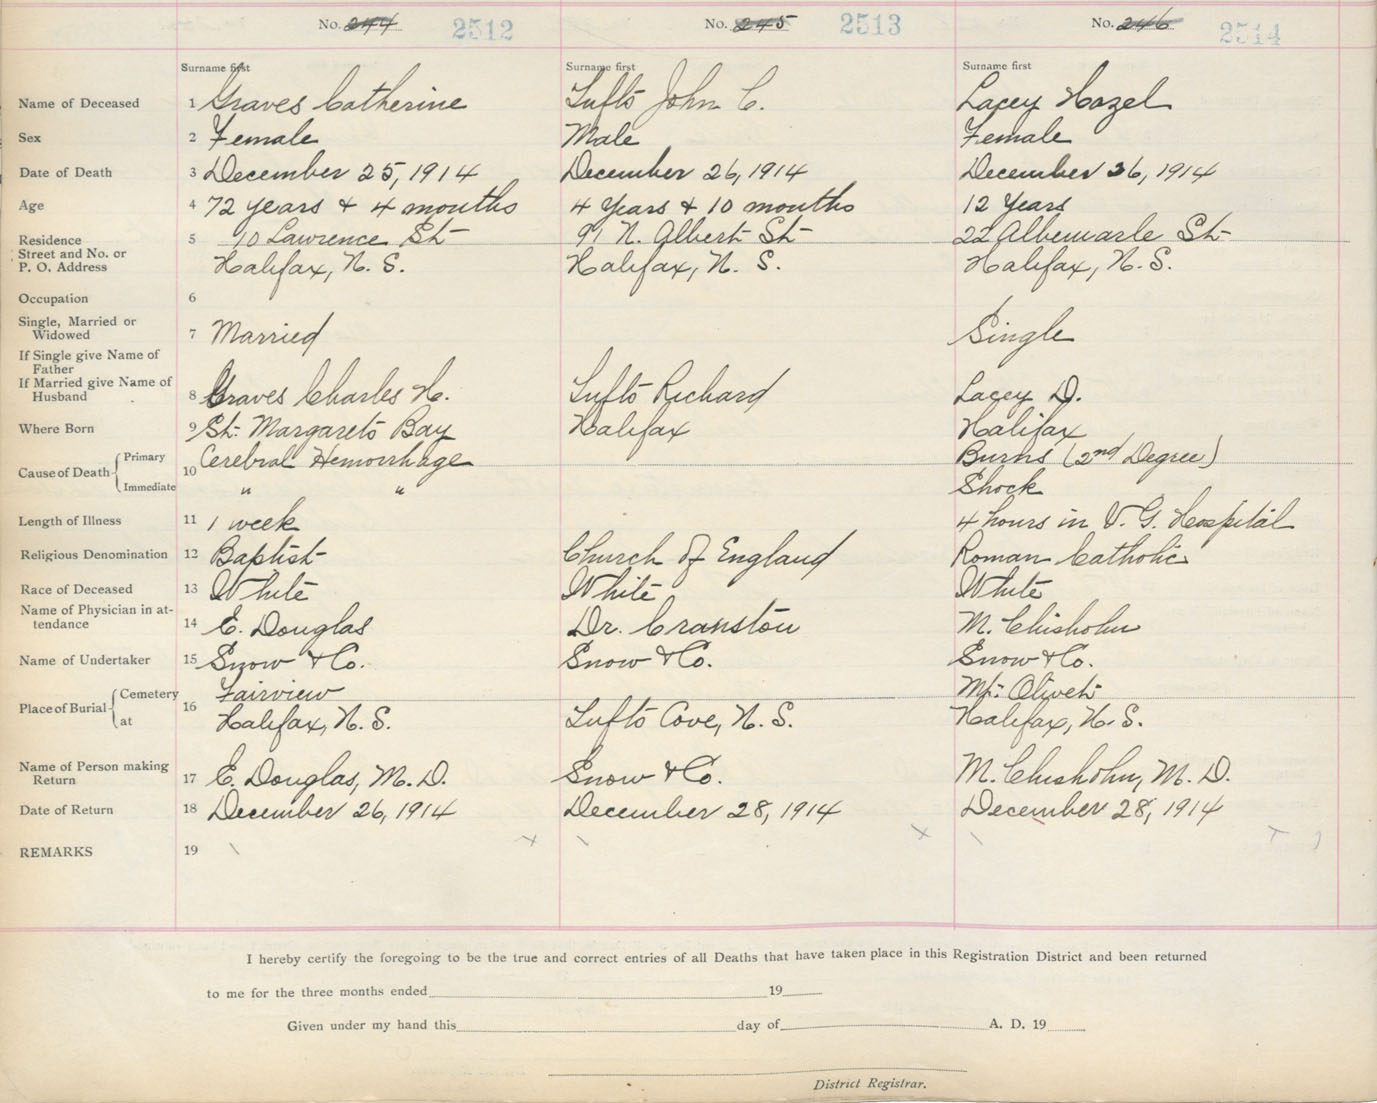 No. 244 2512 No. 245 2513 No. 246 2514
Surname first Surname first Surname first
Name of Deceased 1 Graves Catherine Tufts John C. Lacey Hazel
Sex 2 Female Male Female
Date of Death 3 December 25, 1914 December 26, 1914 December 26, 1914
Age 4 72 years & 4 months 4 Years & 10 months 12 Years
Residence 5 10 Lawrence St 91 N. Albert St 22 Albemarle St
Street and No. or
P. O. Address Halifax, N. S. Halifax, N. S. Halifax, N. S.
Occupation 6
Single, Married or
Widowed 7 Married Single
If Single give Name of
Father
If Married give Name of
Husband 8 Graves Charles H. Tufts Richard Lacey D.
Where Born 9 St. Margarets Bay Halifax Halifax
Cause of Death Primary 10 Cerebral Hemorrhage Burns (2nd Degree)
Immediate " " Shock
Length of Illness 11 1 week 4 hours in V. G. Hospital
Religious Denomination 12 Baptist Church of England Roman Catholic
Race of Deceased 13 White White White
Name of Physician in at-
tendance 14 E. Douglas Dr. Cranston M. Chisholm
Name of Undertaker 15 Snow & Co. Snow & Co. Snow & Co.
Place of Burial Cemetery 16 Fairview Mt. Olivet
at Halifax, N. S. Tufts Cove, N. S. Halifax, N. S.
Name of Person making
Return 17 E. Douglas, M. D. Snow & Co. M. Chisholm, M. D.
Date of Return 18 December 26, 1914 December 28, 1914 December 28, 1914
REMARKS 19
I hereby certify the foregoing to be the true and correct entries of all Deaths that have taken place in this Registration District and been returned
to me for the three months ended 19
Given under my hand this day of A. D. 19
District Registrar.